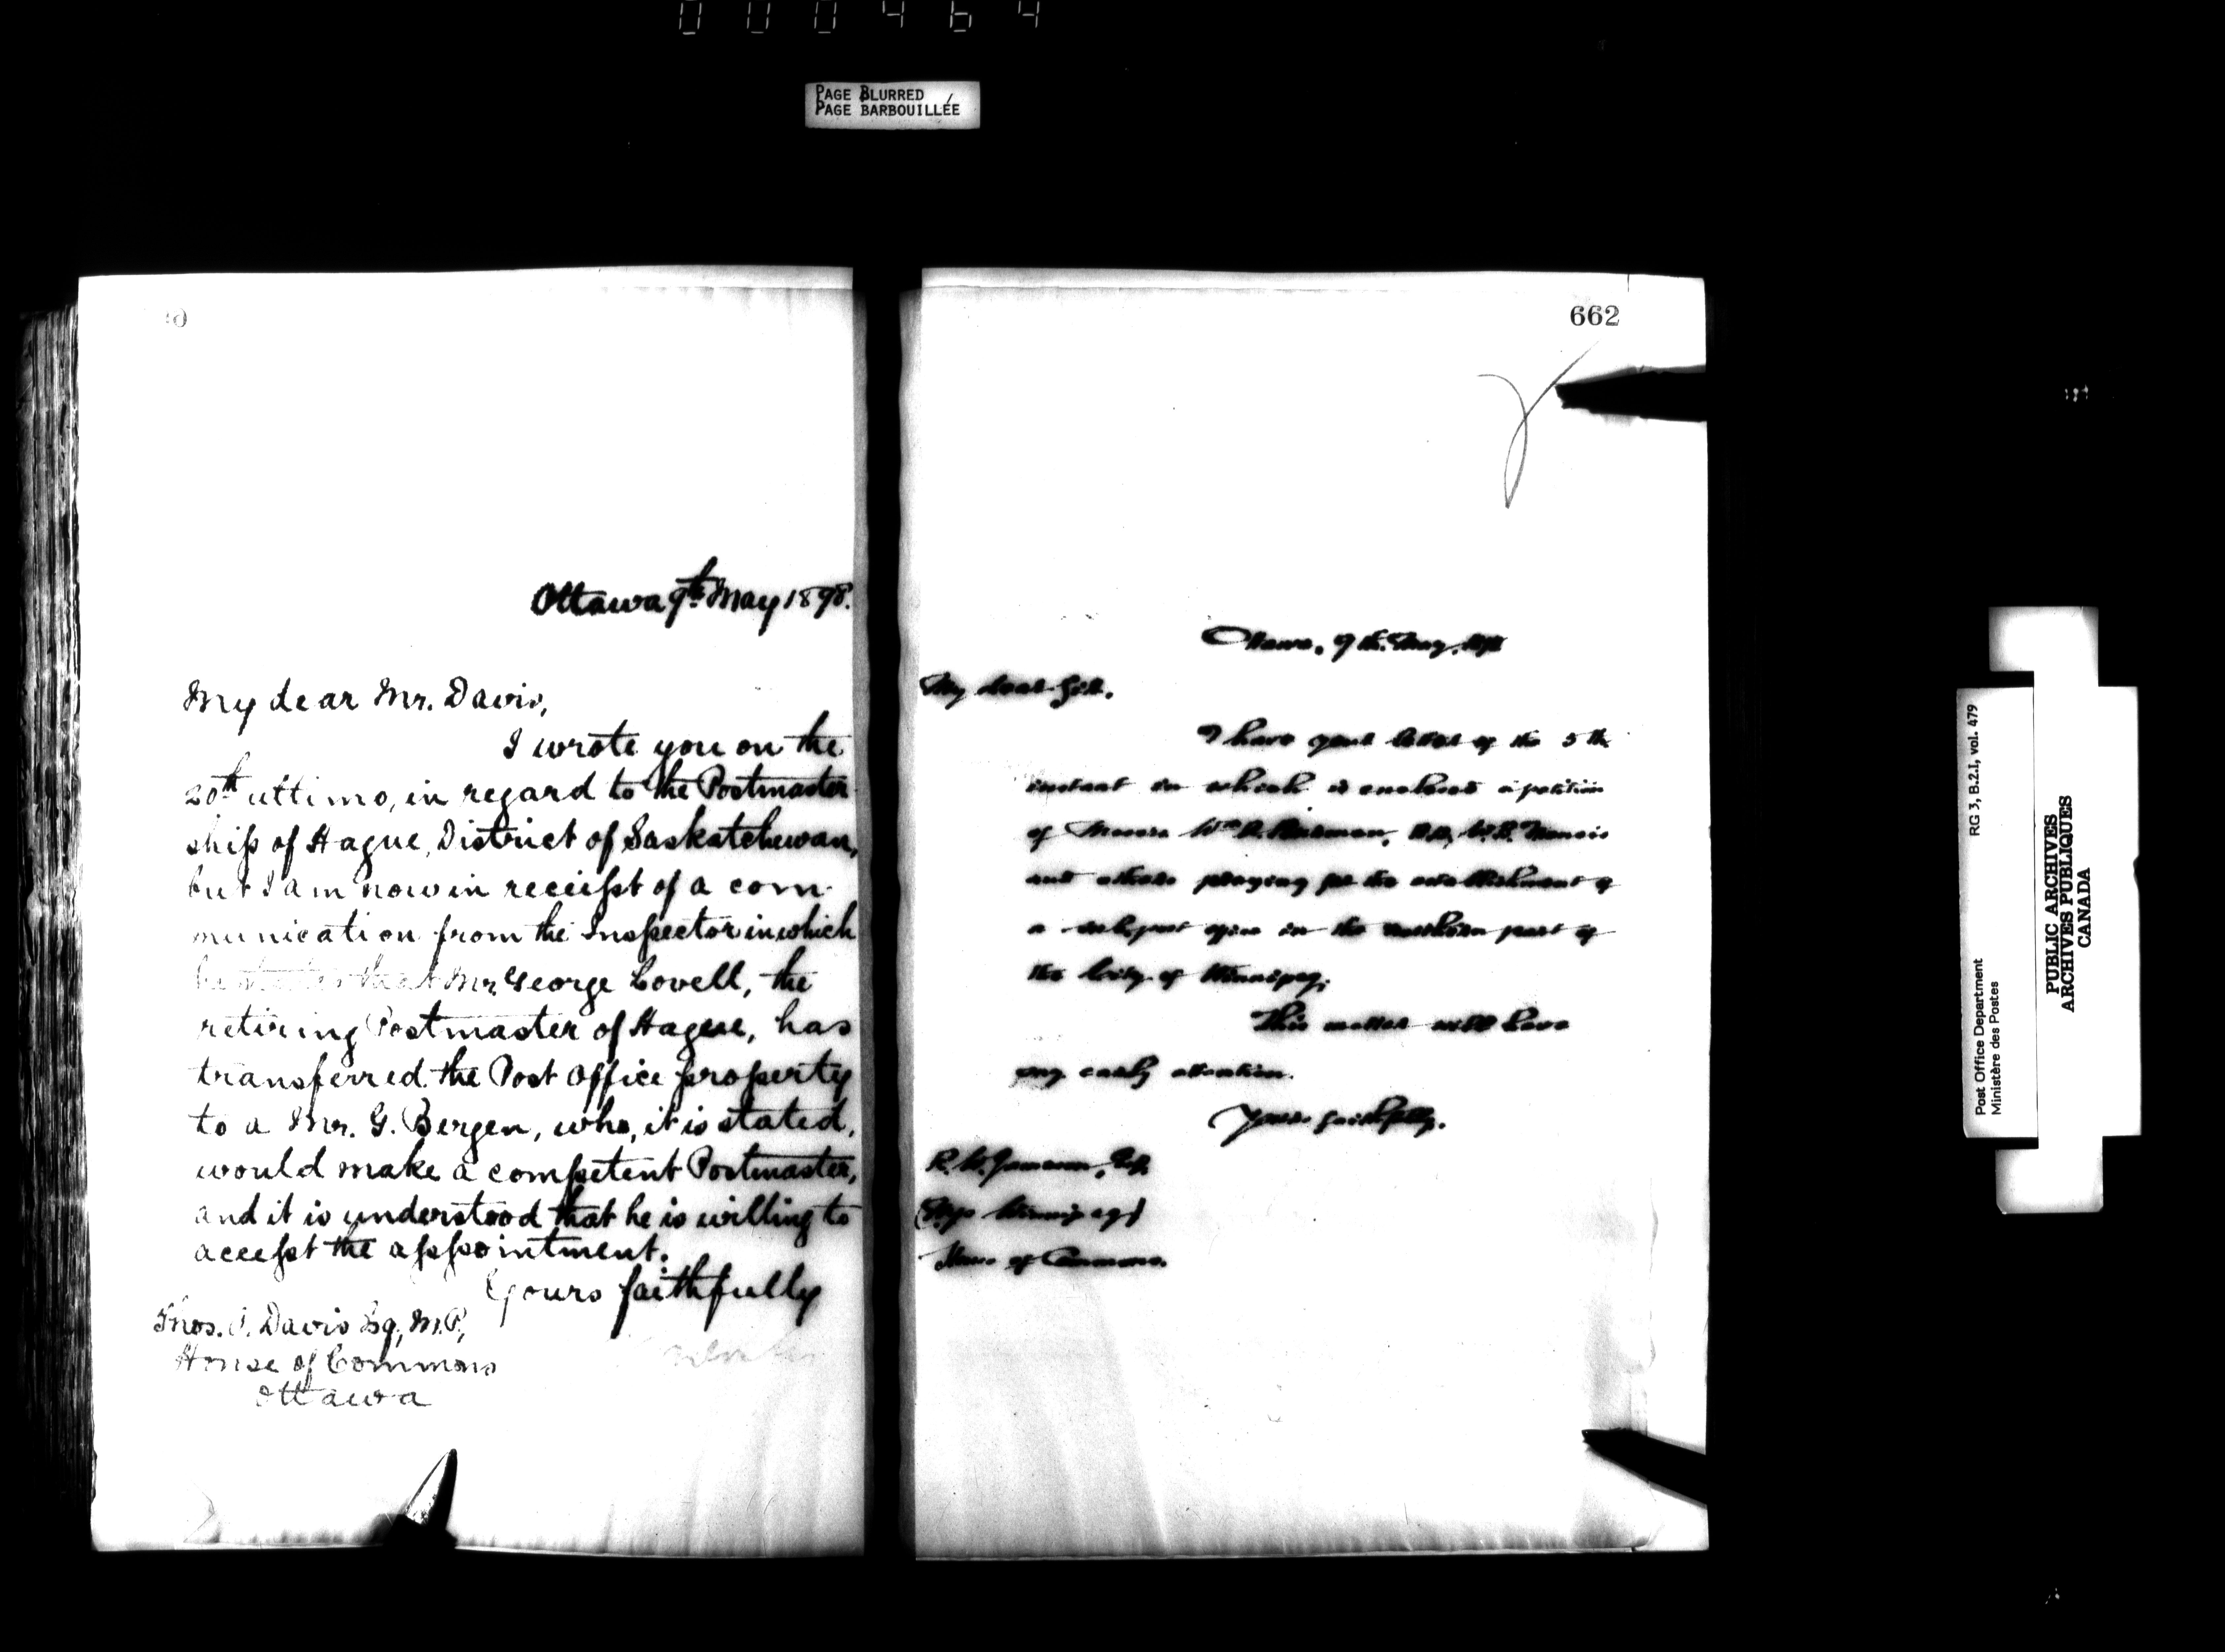 000464
PAGE BLURRED
PAGE BARBOUILLÉE
Ottawa 9th May 1898.
My dear Mr. Davis,
I wrote you on the
20th ultimo, in regard to the Postmaster
ship of Hague, District of Saskatchewan,
but I am now in receipt of a com-
munication from the Inspector in which
he states that Mr. George Lovell, the
retiring Postmaster of Hague, has
transferred the Post Office property
to a Mr. G. Bergen, who, it is stated,
would make a competent Postmaster,
and it is understood that he is willing to
accept the appointment.
Yours faithfully
Thos. O. Davis Esq, M.P.,
House of Commons
Ottawa
662
Ottawa, 9th. May,
My dear Sir,
I have your letter of the 5th
instant in which is enclosed a petition
of Messrs Wm
and others praying for the establishment of
a sub post office in the northern part of
the City of Winnipeg.
This matter will have
my early attention.
Yours faithfully,
R. W. Jameson, Esq.
Winnipeg)
House of Commons.
Post Office Department
Ministère des Postes
RG 3, B.2.I, vol. 479
PUBLIC ARCHIVES
ARCHIVES PUBLIQUES
CANADA